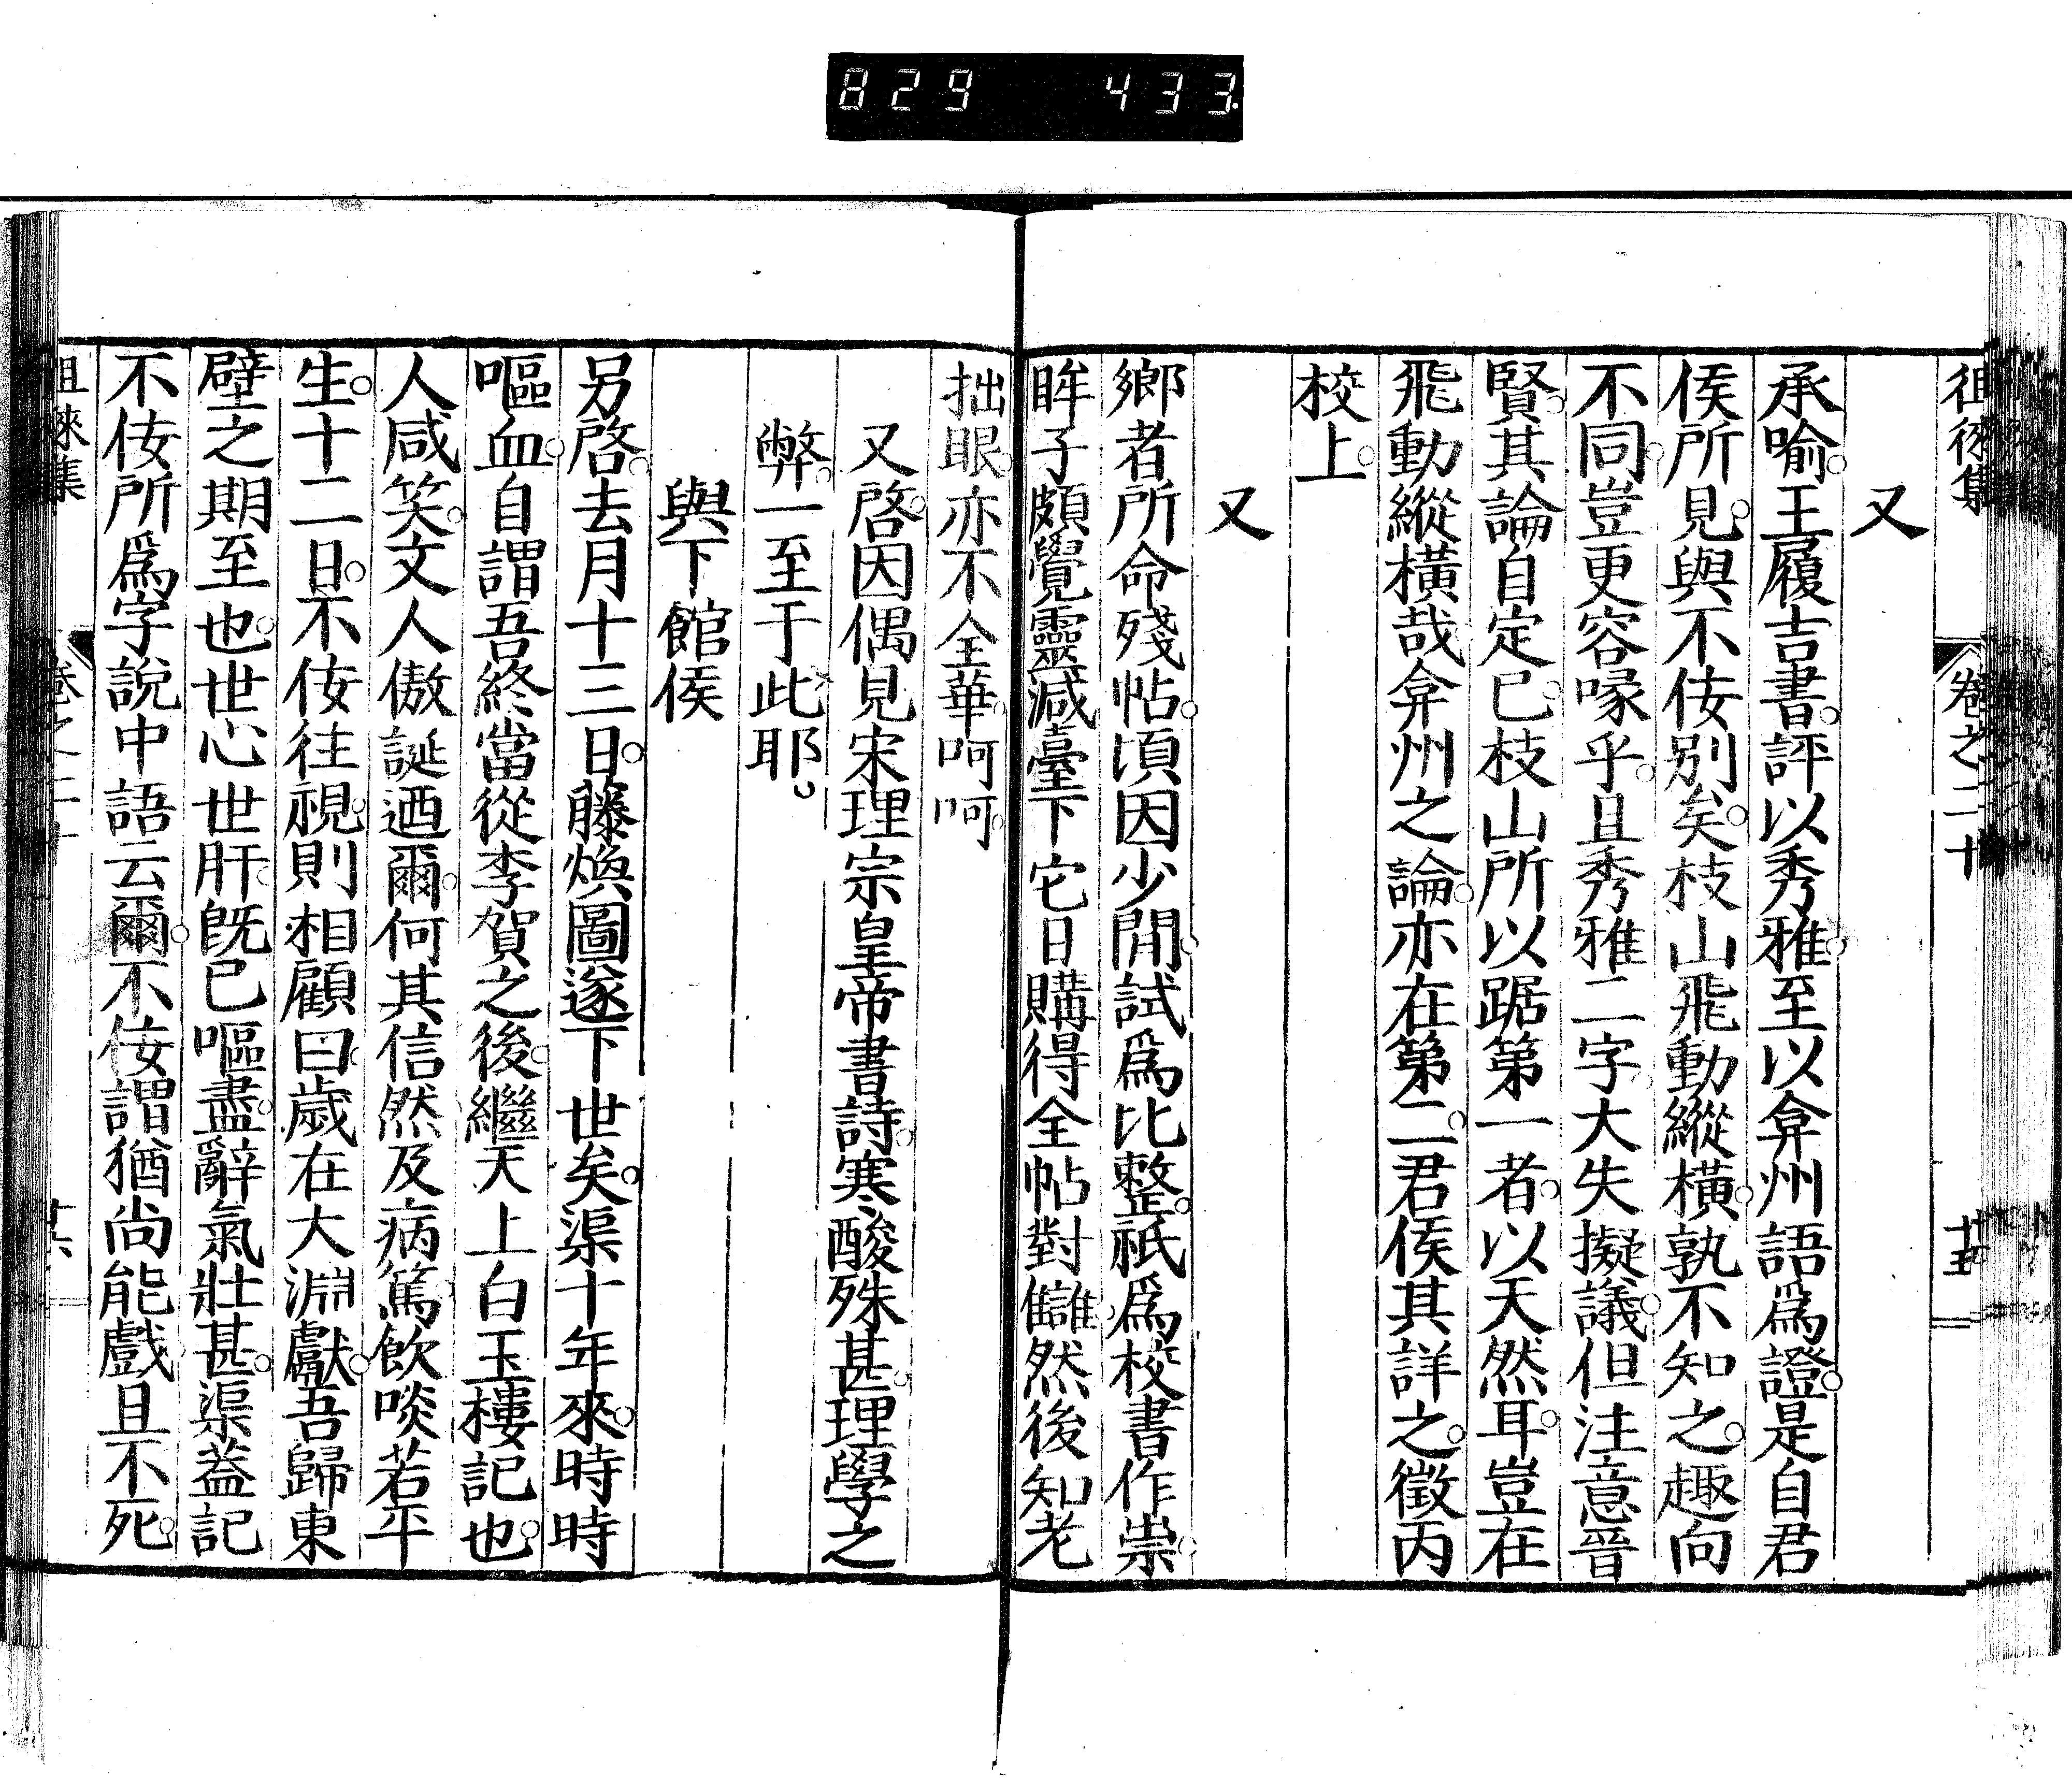 829 433
徂徠集 卷之二十 十五
又
承喻王履吉書評以秀雅至以弇州語爲證是自君
侯所見與不佞別矣枝山飛動縱橫孰不知之趣向
不同豈更容喙乎且秀雅二字大失擬議但注意晉
賢其論自定已枝山所以踞第一者以天然耳豈在
飛動縱橫哉弇州之論亦在第二君侯其詳之徵丙
校上
又
鄉者所命殘帖頃因少閒試爲比整祇爲校書作祟
眸子頗覺靈減臺下它日購得全帖對讎然後知老
拙眼亦不全華呵呵
又啓因偶見宋理宗皇帝書詩寒酸殊甚理學之
弊一至于此耶
與下館侯
另啓去月十三日藤煥圖遂下世矣渠十年來時時
嘔血自謂吾終當從李賀之後繼天上白玉樓記也
人咸笑文人傲誕迺爾何其信然及病篤飲啖若平
生十二日不佞往視則相顧曰歲在大淵獻吾歸東
壁之期至也世心世肝旣已嘔盡辭氣壯甚渠蓋記
不佞所爲字說中語云爾不佞謂猶尚能戲且不死
徂徠集 卷之二十 十六